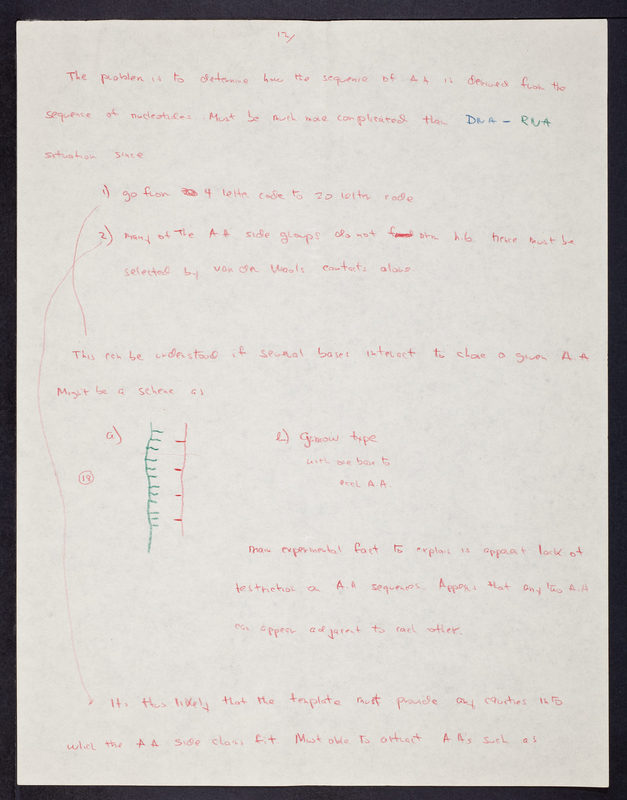 12/
The problem is to determine how the sequence of AA is derived from the
sequence of nucleotides. Must be much more complicated than DNA - RNA
situation since
1) go from 4 letter code to 20 letter code
2) Many of the AA side groups do not form h.b. Hence must be
selected by van der Waals contacts alone
This can be understood if several bases interact to chose a given AA
Might be a scheme as
a)
b) Gamow type
with one base to
each A.A.
18
Main experimental fact to explain is apparent lack of
restriction on A.A sequences. Appears that any two A.A
can appear adjacent to each other.
It is thus likely that the template must provide any cavities into
which the AA side chains fit Must able to attract AA's such as